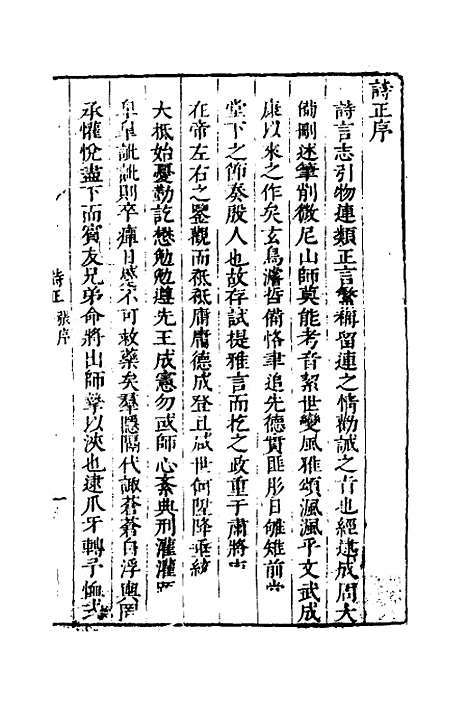 詩正序
詩言志引物連類正言繁稱留連之情勸誡之旨也經述成周大
備刪述筆削微尼山師莫能考音絜世變風雅頌渢渢乎文武成
康以來之作矣玄鳥濬哲備恪聿追先德貫匪彤日雊雉前
堂下之節奏殷人也故存試提雅言而扢之政重于肅將
在帝左右之鑒觀而祗祗庸庸德成登且咸世何陞降垂統
大抵始憂勤訖懋勉勉遵先王成憲勿或師心紊典刑灌灌
皐皐訿訿則卒癉日爕不可救藥矣羣隱隔代諏蒼蒼白浮輿
承懽悅盡下而賓友兄弟命將出師率以浹也逮爪牙轉予恤
詩正 張序 一